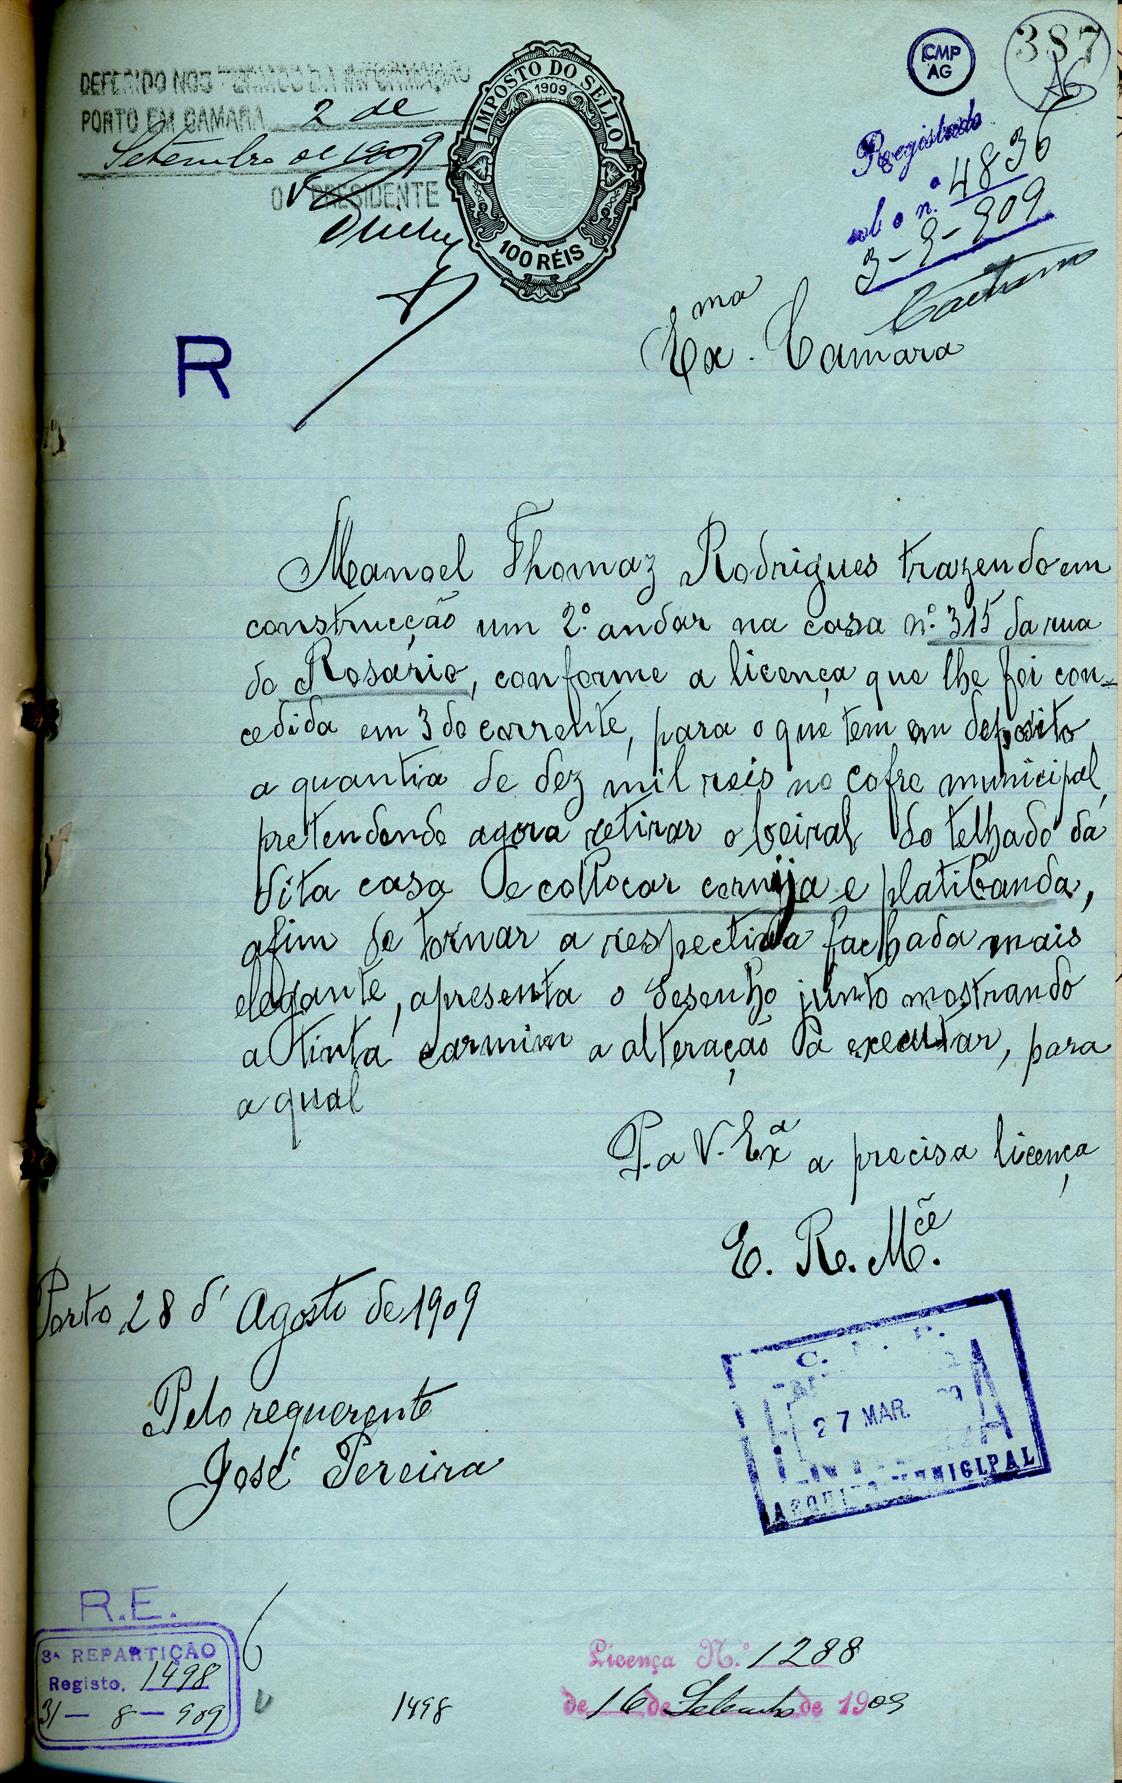 DEFERIDO NOS TERMOS DA INFORMAÇÃO
PORTO EM CAMARA 2 de
Setembro de 1909
O PRESIDENTE
IMPOSTO DO SELLO
1909
100 RÉIS
CMP
AG
387
Registado
sob o n.º 4836
3-9-909
R
Exma. Camara
Manoel Thomaz Rodrigues trazendo em
construcção um 2.º andar na casa n.º 315 da rua
do Rosário, conforme a licença que lhe foi con-
cedida em 3 do corrente, para o que tem em deposito
a quantia de dez mil reis no cofre municipal,
pretendendo agora retirar o beiral do telhado da
dita casa e collocar cornija e platibanda,
afim de tornar a respectiva fachada mais
elegante, apresenta o desenho junto mostrando
a tinta carmim a alteração a executar, para
a qual
P. a V. Exa a precisa licença
E. R. Mcê.
Porto 28 d'Agosto de 1909
Pelo requerente
José Pereira
27 MAR.
ARQUIVO MUNICIPAL
R.E.
3ª REPARTIÇÃO
Registo. 1498
31-8-909
6
1498
Licença N.º 1288
de 16 de Setembro de 1909